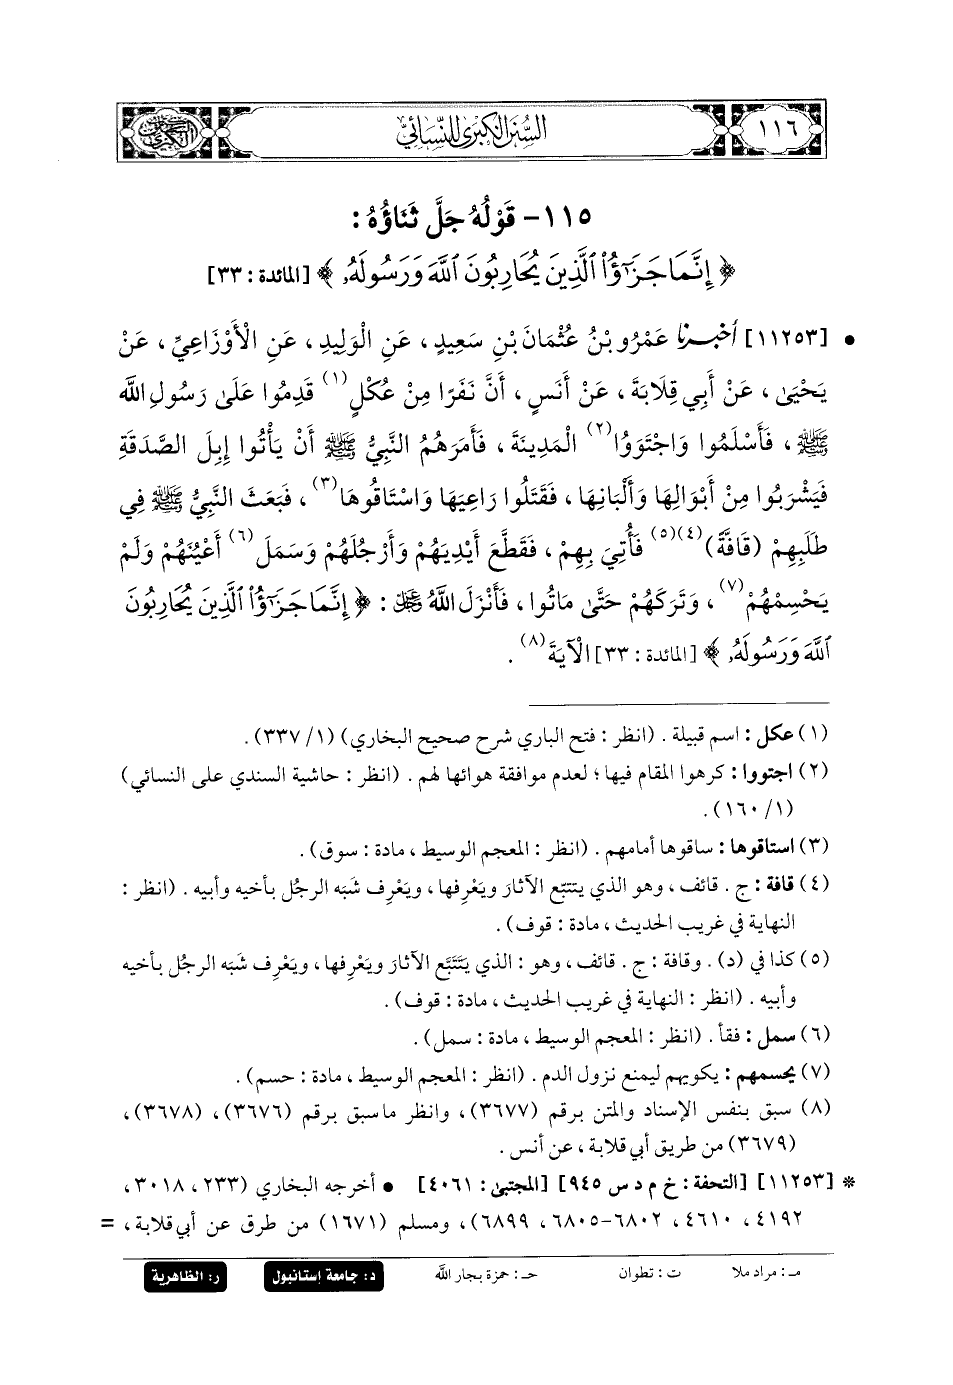 ١١٦
السنن الكبرى للنسائي
١١٥- قَوْلُهُ جَلَّ ثَنَاؤُهُ :
﴿ إِنَّمَا جَزَٰٓؤُا۟ ٱلَّذِينَ يُحَارِبُونَ ٱللَّهَ وَرَسُولَهُۥ ﴾ [المائدة : ٣٣]
• [١١٢٥٣] أخبرنا عَمْرُو بْنُ عُثْمَانَ بْنِ سَعِيدٍ ، عَنِ الْوَلِيدِ ، عَنِ الْأَوْزَاعِيِّ ، عَنْ
يَحْيَىٰ ، عَنْ أَبِي قِلَابَةَ ، عَنْ أَنَسٍ ، أَنَّ نَفَرًا مِنْ عُكْلٍ (١) قَدِمُوا عَلَىٰ رَسُولِ اللَّه
ﷺ ، فَأَسْلَمُوا وَاجْتَوَوُا (٢) الْمَدِينَةَ ، فَأَمَرَهُمُ النَّبِيُّ ﷺ أَنْ يَأْتُوا إِبِلَ الصَّدَقَةِ
فَيَشْرَبُوا مِنْ أَبْوَالِهَا وَأَلْبَانِهَا ، فَقَتَلُوا رَاعِيَهَا وَاسْتَاقُوهَا (٣) ، فَبَعَثَ النَّبِيُّ ﷺ فِي
طَلَبِهِمْ (قَافَةً) (٤)(٥) فَأُتِيَ بِهِمْ ، فَقَطَّعَ أَيْدِيَهُمْ وَأَرْجُلَهُمْ وَسَمَلَ (٦) أَعْيُنَهُمْ وَلَمْ
يَحْسِمْهُمْ (٧) ، وَتَرَكَهُمْ حَتَّىٰ مَاتُوا ، فَأَنْزَلَ اللَّهُ ﷻ : ﴿ إِنَّمَا جَزَٰٓؤُا۟ ٱلَّذِينَ يُحَارِبُونَ
ٱللَّهَ وَرَسُولَهُۥ ﴾ [المائدة : ٣٣] الْآيَةَ (٨) .
(١) عكل : اسم قبيلة . (انظر : فتح الباري شرح صحيح البخاري) (١/ ٣٣٧) .
(٢) اجتووا : كرهوا المقام فيها ؛ لعدم موافقة هوائها لهم . (انظر : حاشية السندي على النسائي)
(١/ ١٦٠) .
(٣) استاقوها : ساقوها أمامهم . (انظر : المعجم الوسيط ، مادة : سوق) .
(٤) قافة : ج . قائف ، وهو الذي يتتبع الآثار ويَعْرِفها ، ويَعْرِف شَبَه الرجُل بأخيه وأبيه . (انظر :
النهاية في غريب الحديث ، مادة : قوف) .
(٥) كذا في (د) . وقافة : ج . قائف ، وهو : الذي يَتَتَبَّع الآثار ويَعْرِفها ، ويَعْرِف شَبَه الرجُل بأخيه
وأبيه . (انظر : النهاية في غريب الحديث ، مادة : قوف) .
(٦) سمل : فقأ . (انظر : المعجم الوسيط ، مادة : سمل) .
(٧) يحسمهم : يكويهم ليمنع نزول الدم . (انظر : المعجم الوسيط ، مادة : حسم) .
(٨) سبق بنفس الإسناد والمتن برقم (٣٦٧٧) ، وانظر ما سبق برقم (٣٦٧٦) ، (٣٦٧٨) ،
(٣٦٧٩) من طريق أبي قلابة ، عن أنس .
* [١١٢٥٣] [التحفة : خ م د س ٩٤٥] [المجتبى : ٤٠٦١] • أخرجه البخاري (٢٣٣ ، ٣٠١٨ ،
٤١٩٢ ، ٤٦١٠ ، ٦٨٠٢-٦٨٠٥ ، ٦٨٩٩) ، ومسلم (١٦٧١) من طرق عن أبي قلابة ، =
مـ : مراد ملا ت : تطوان حـ : حمزة بجار الله د : جامعة إستانبول ر : الظاهرية